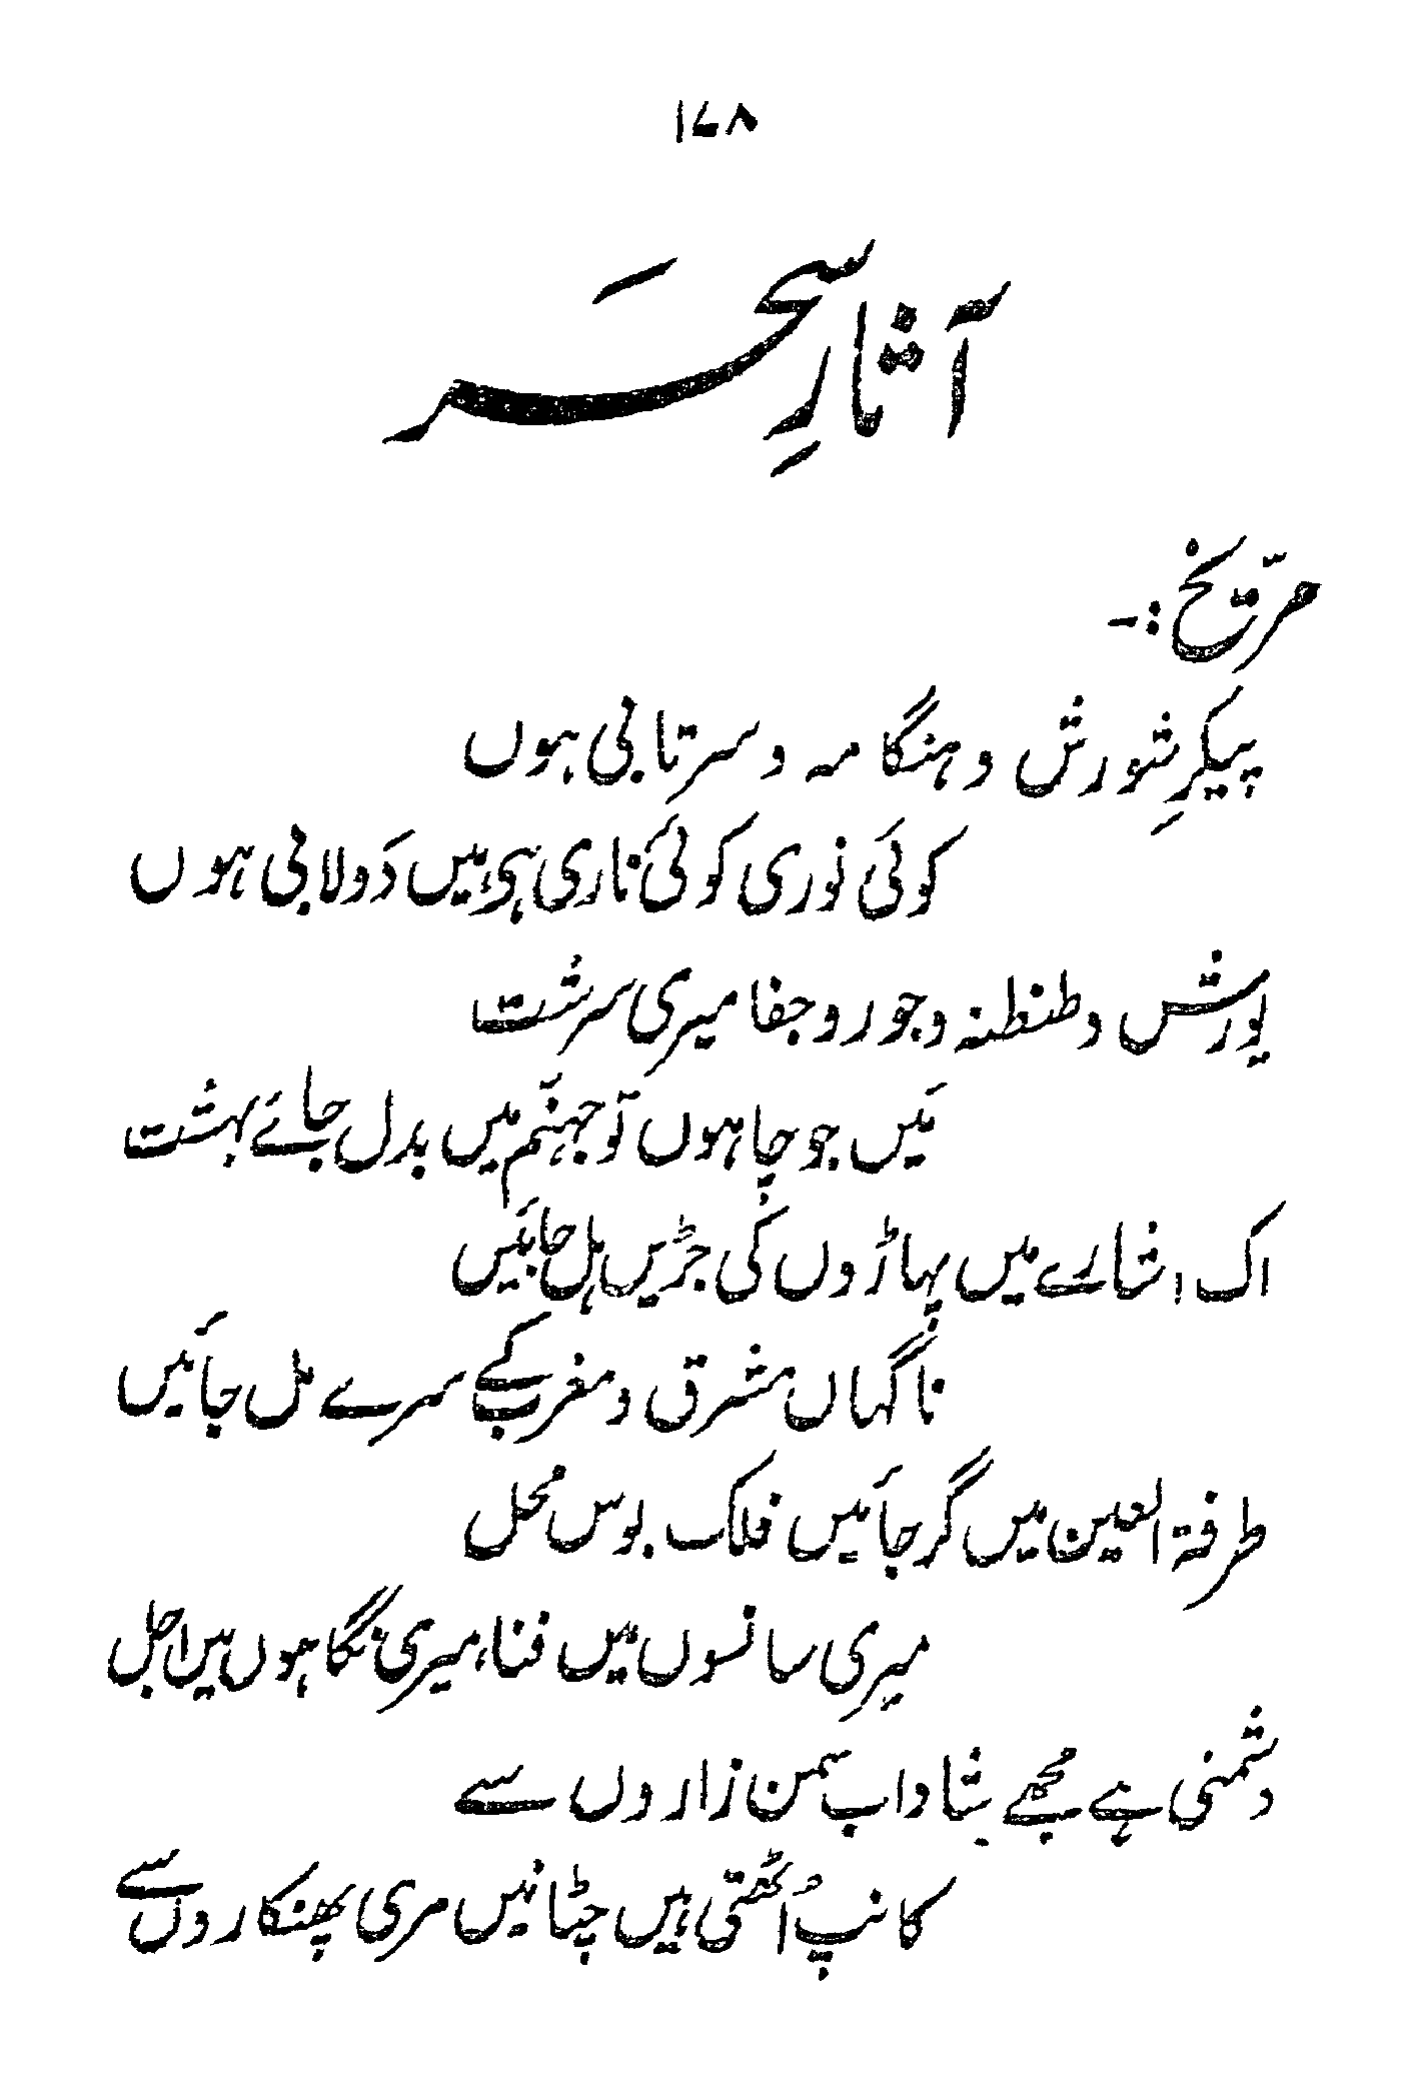 ۱۷۸
آثارِ سحَر
مرّیخ :-
پیکرِ شورش و ہنگامہ و سرتابی ہوں
کوئی نوری کوئی ناری ہے، میں دَولابی ہوں
یورش و طنطنہ و جور و جفا میری سرشت
مَیں جو چاہوں تو جہنّم میں بدل جائے بہشت
اک اشارے میں پہاڑوں کی جڑیں ہل جائیں
ناگہاں مشرق و مغرب کے سرے مل جائیں
طرفۃ العین میں گر جائیں فلک بوس محل
میری سانسوں میں فنا، میری نگاہوں میں اجل
دشمنی ہے مجھے شاداب سمن زاروں سے
کانپ اُٹھتی ہیں چٹانیں مری پھنکاروں سے